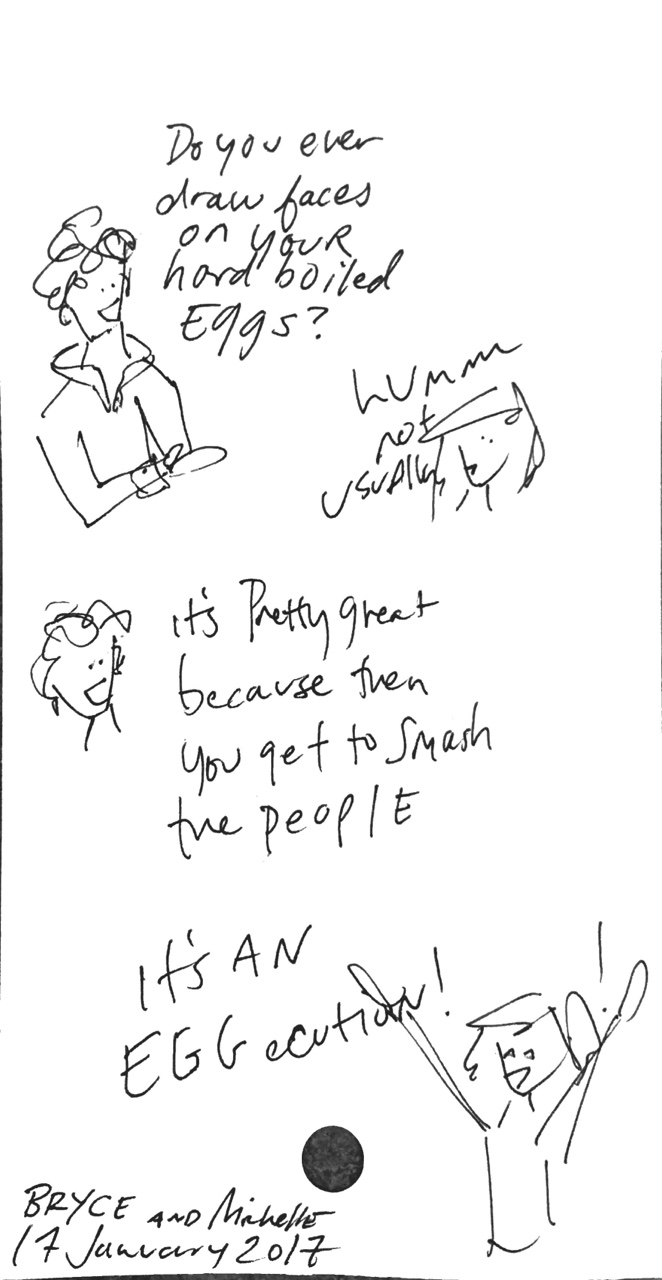 Do you ever
draw faces
on your
hard boiled
Eggs?
hummm
not
usually
it's Pretty great
because then
you get to smash
the peoplE
It's AN
EGGecution!
!
BRYCE AND Michelle
17 January 2017